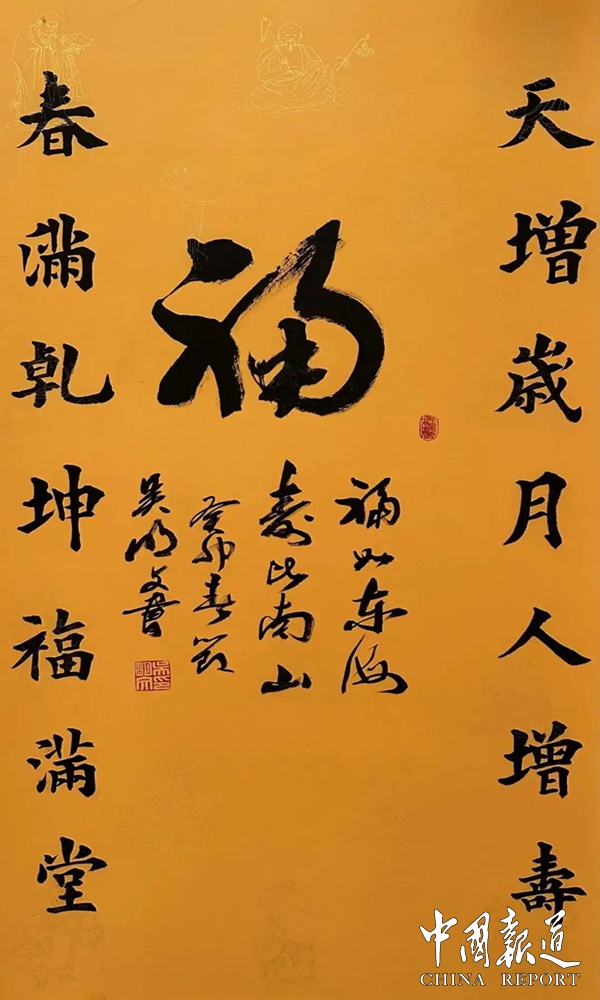 天增歲月人增壽
福
福如东海
寿比南山
癸卯春节
吴明文书
春滿乾坤福滿堂
中国报道
CHINA REPORT